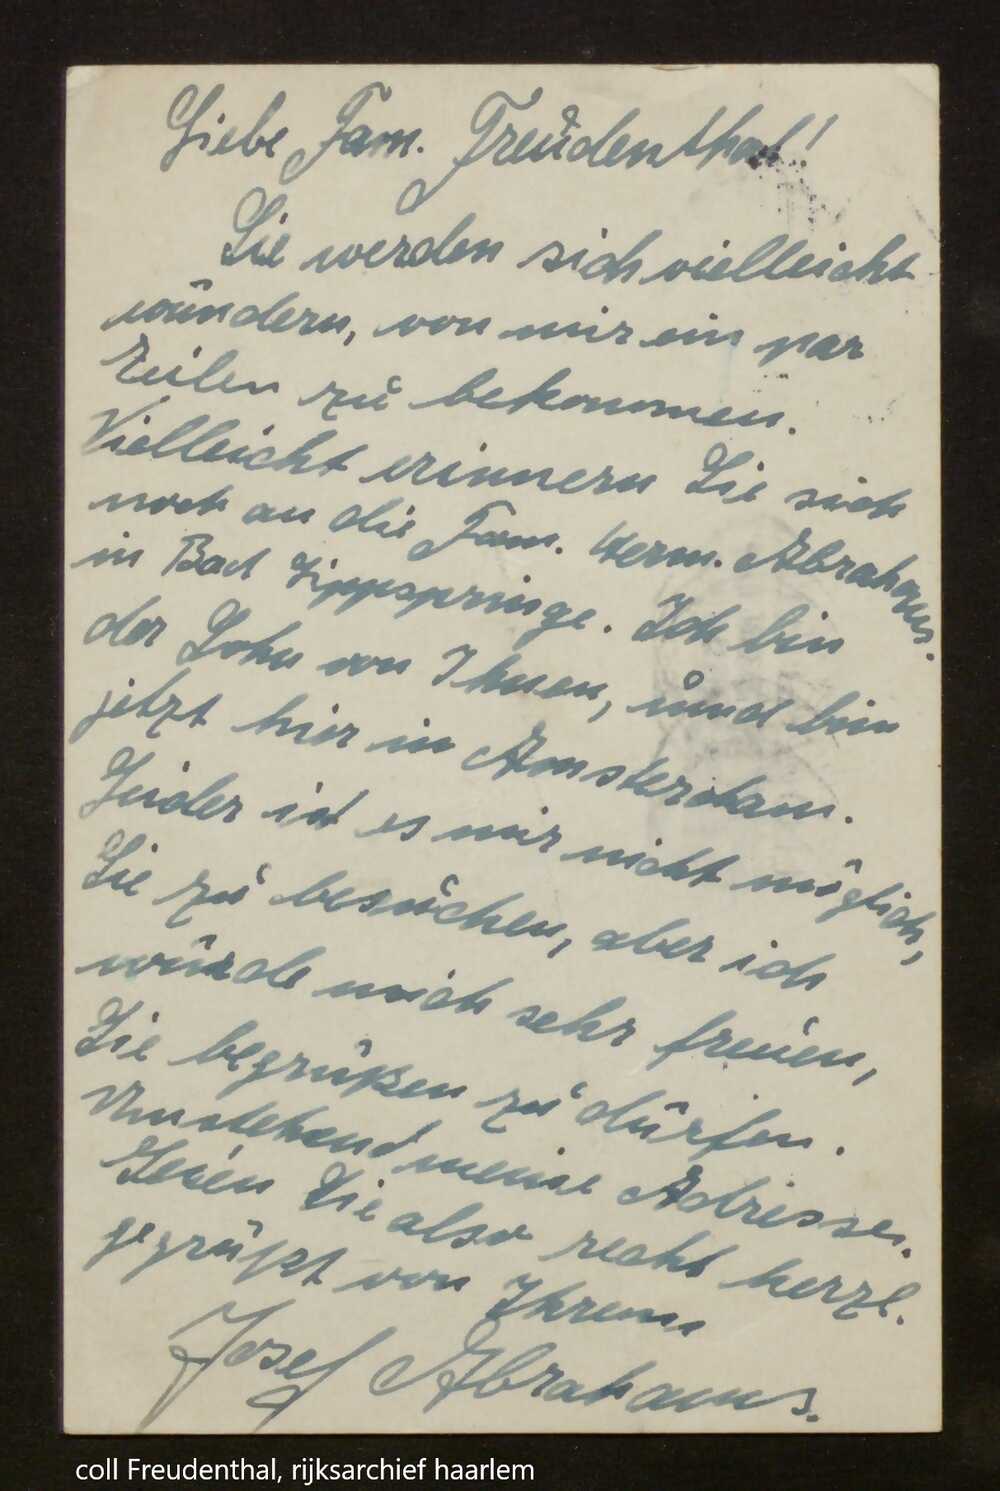 Liebe Fam. Freudenthal!
Sie werden sich vielleicht
wundern, von mir ein par
Zeilen zu bekommen.
Vielleicht erinnern Sie sich
noch an die Fam. Herm. Abrahams.
in Bad Lippspringe. Ich bin
der Sohn von Ihnen, und bin
jetzt hier in Amsterdam.
Leider ist es mir nicht möglich,
Sie zu besuchen, aber ich
würde mich sehr freuen,
Sie begrüßen zu dürfen.
Umstehend meine Adresse.
Seien Sie also recht herzl.
gegrüßt von Ihrem
Josef Abrahams.
coll Freudenthal, rijksarchief haarlem